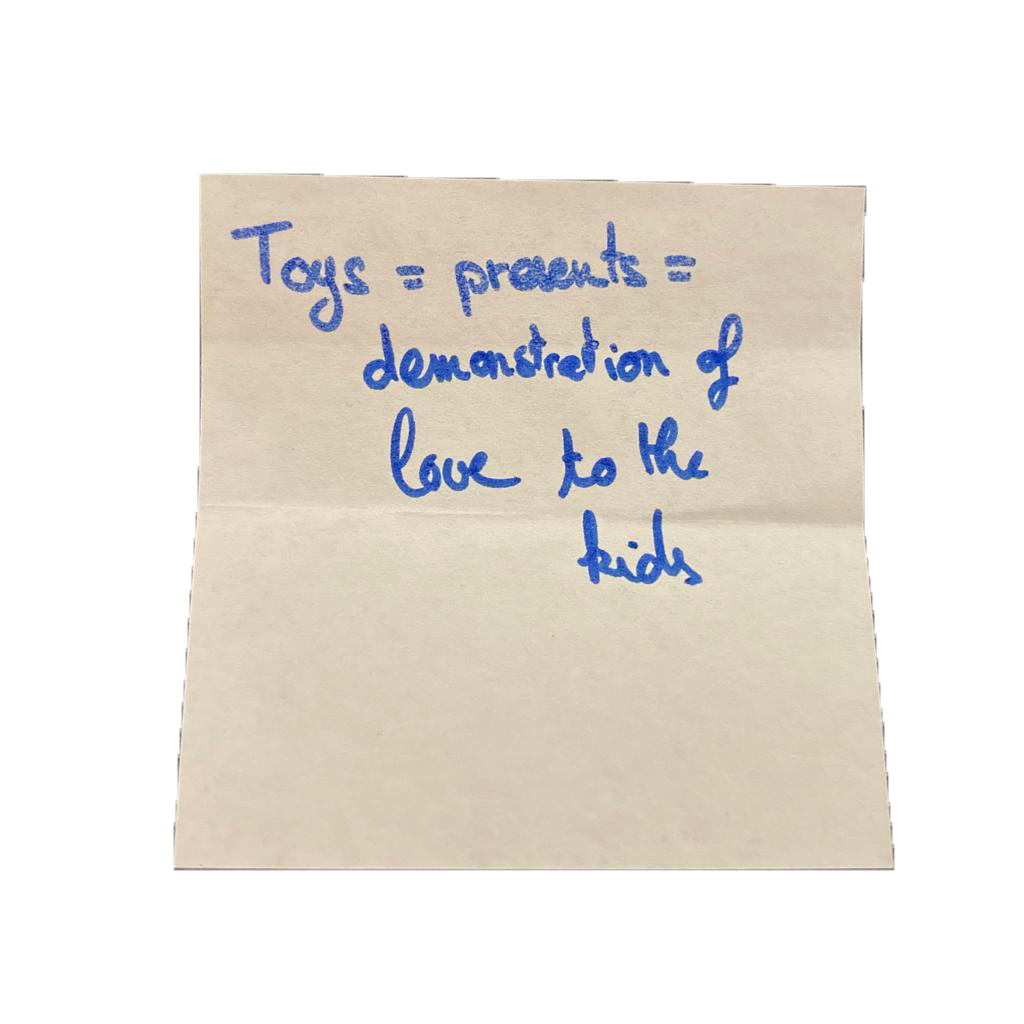 Toys = presents =
demonstration of
love to the
kids